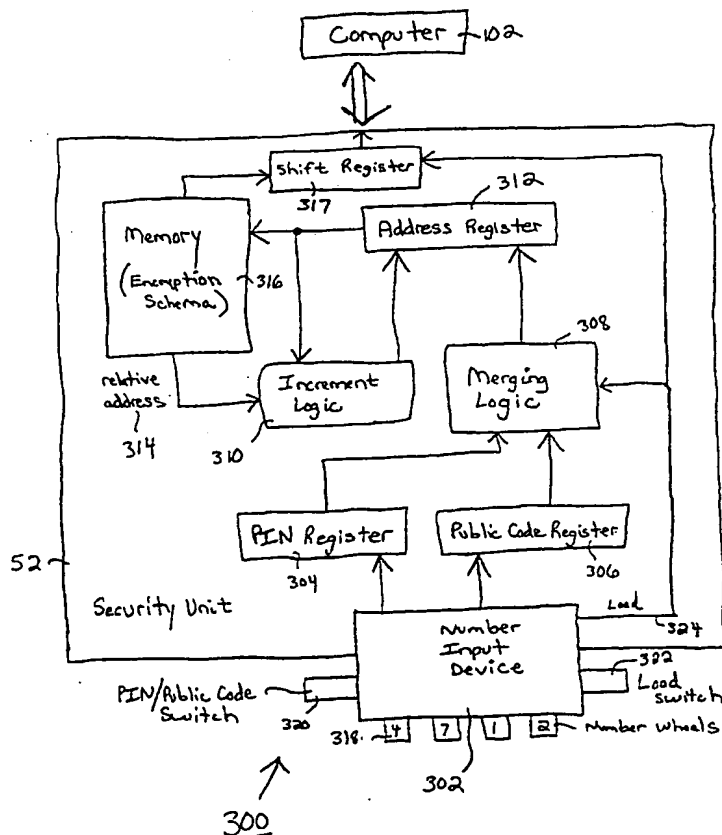 Computer 102
Shift Register
317
312
Address Register
Memory
(Encryption
Schema)
316
308
Merging
Logic
relative
address
314
Increment
Logic
310
PIN Register
304
Public Code Register
306
52
Security Unit
Load
324
Number
Input
Device
322
Load
switch
PIN/Public Code
Switch
320
318
4 7 1 2
Number Wheels
302
300